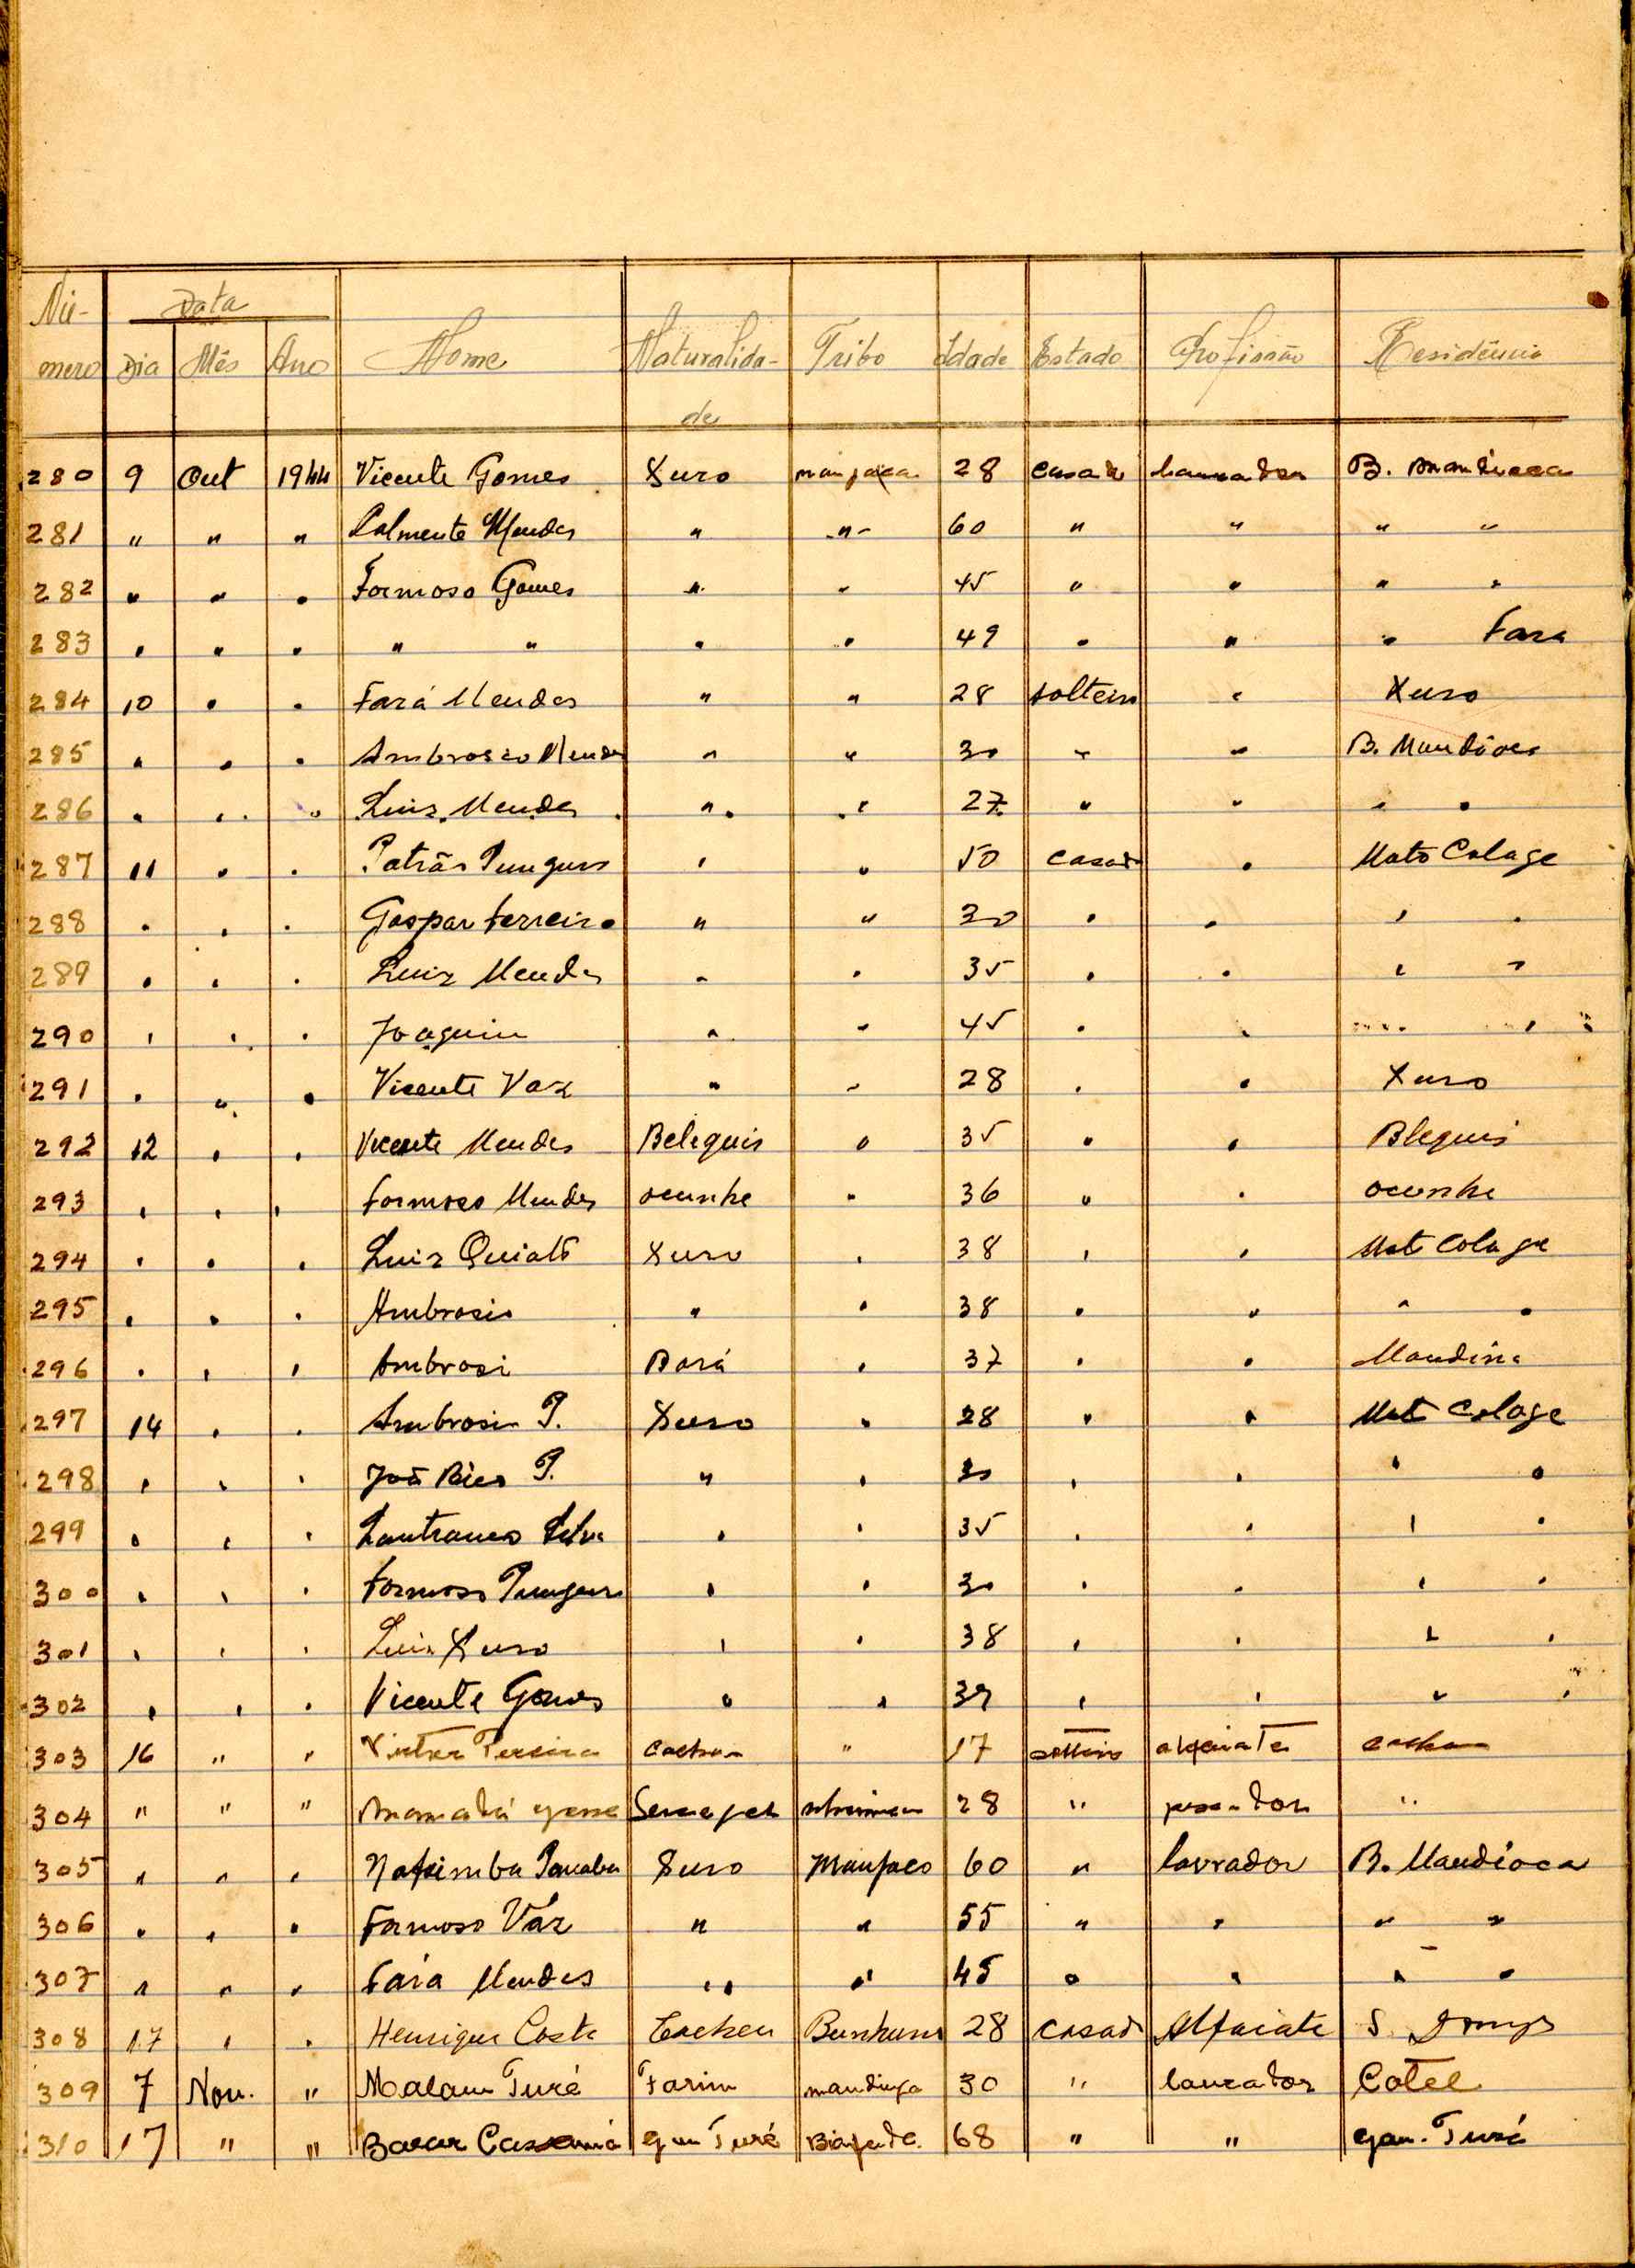 Data
Nú-
mero Dia Mês Ano Nome Naturalida- Tribo Idade Estado Profissão Residência
de
280 9 Out 1944 Vicente Gomes Xuro manjaca 28 casado lavrador B. Mandioca
281 " " " Palmente Mendes " " 60 " " " "
282 " " " Formoso Gomes " " 45 " " " "
283 " " " " " " " 49 " " " Fara
284 10 " " Fará Mendes " " 28 solteiro " Xuro
285 " " " Ambrosio Mendes " " 30 " " B. Mandioca
286 " " " Luiz Mendes " " 27 " " " "
287 11 " " Patrão Pungura " " 50 casado " Mato Colage
288 " " " Gaspar Ferreira " " 30 " " " "
289 " " " Luiz Mendes " " 35 " " " "
290 " " " Joaquim " " 45 " " " "
291 " " " Vicente Vaz " " 28 " " Xuro
292 12 " " Vicente Mendes Beleguis " 35 " " Bleguis
293 " " " Formoso Mendes ocunhe " 36 " " ocunhe
294 " " " Luiz Quiato Xuro " 38 " " Mato Colage
295 " " " Ambrosio " " 38 " " " "
296 " " " Ambrosi Bará " 37 " "
297 14 " " Ambrosio P. Xuro " 28 " " Mato Colage
298 " " " João P. " " " " " "
299 " " " Silva " " 35 " " " "
300 " " " Formoso Pungura " " 30 " " " "
301 " " " Luiz Xuro " " 38 " " " "
302 " " " Vicente Gomes " " 39 " " " "
303 16 " " Victor Pereira Cacheu " 17 solteiro alfaiate Cacheu
304 " " " 28 " pescador "
305 " " " Xuro Manjaco 60 " lavrador B. Mandioca
306 " " " Formoso Váz " " 55 " " " "
307 " " " Fára Mendes " " 45 " " " "
308 17 " " Henrique Costa Cacheu 28 casado Alfaiate
309 7 Nov. " Malam Turé Farim mandinga 30 " lavrador Cotel
310 17 " " Bacar Cassamá gan Turé Biafada 68 " " gan. Turé